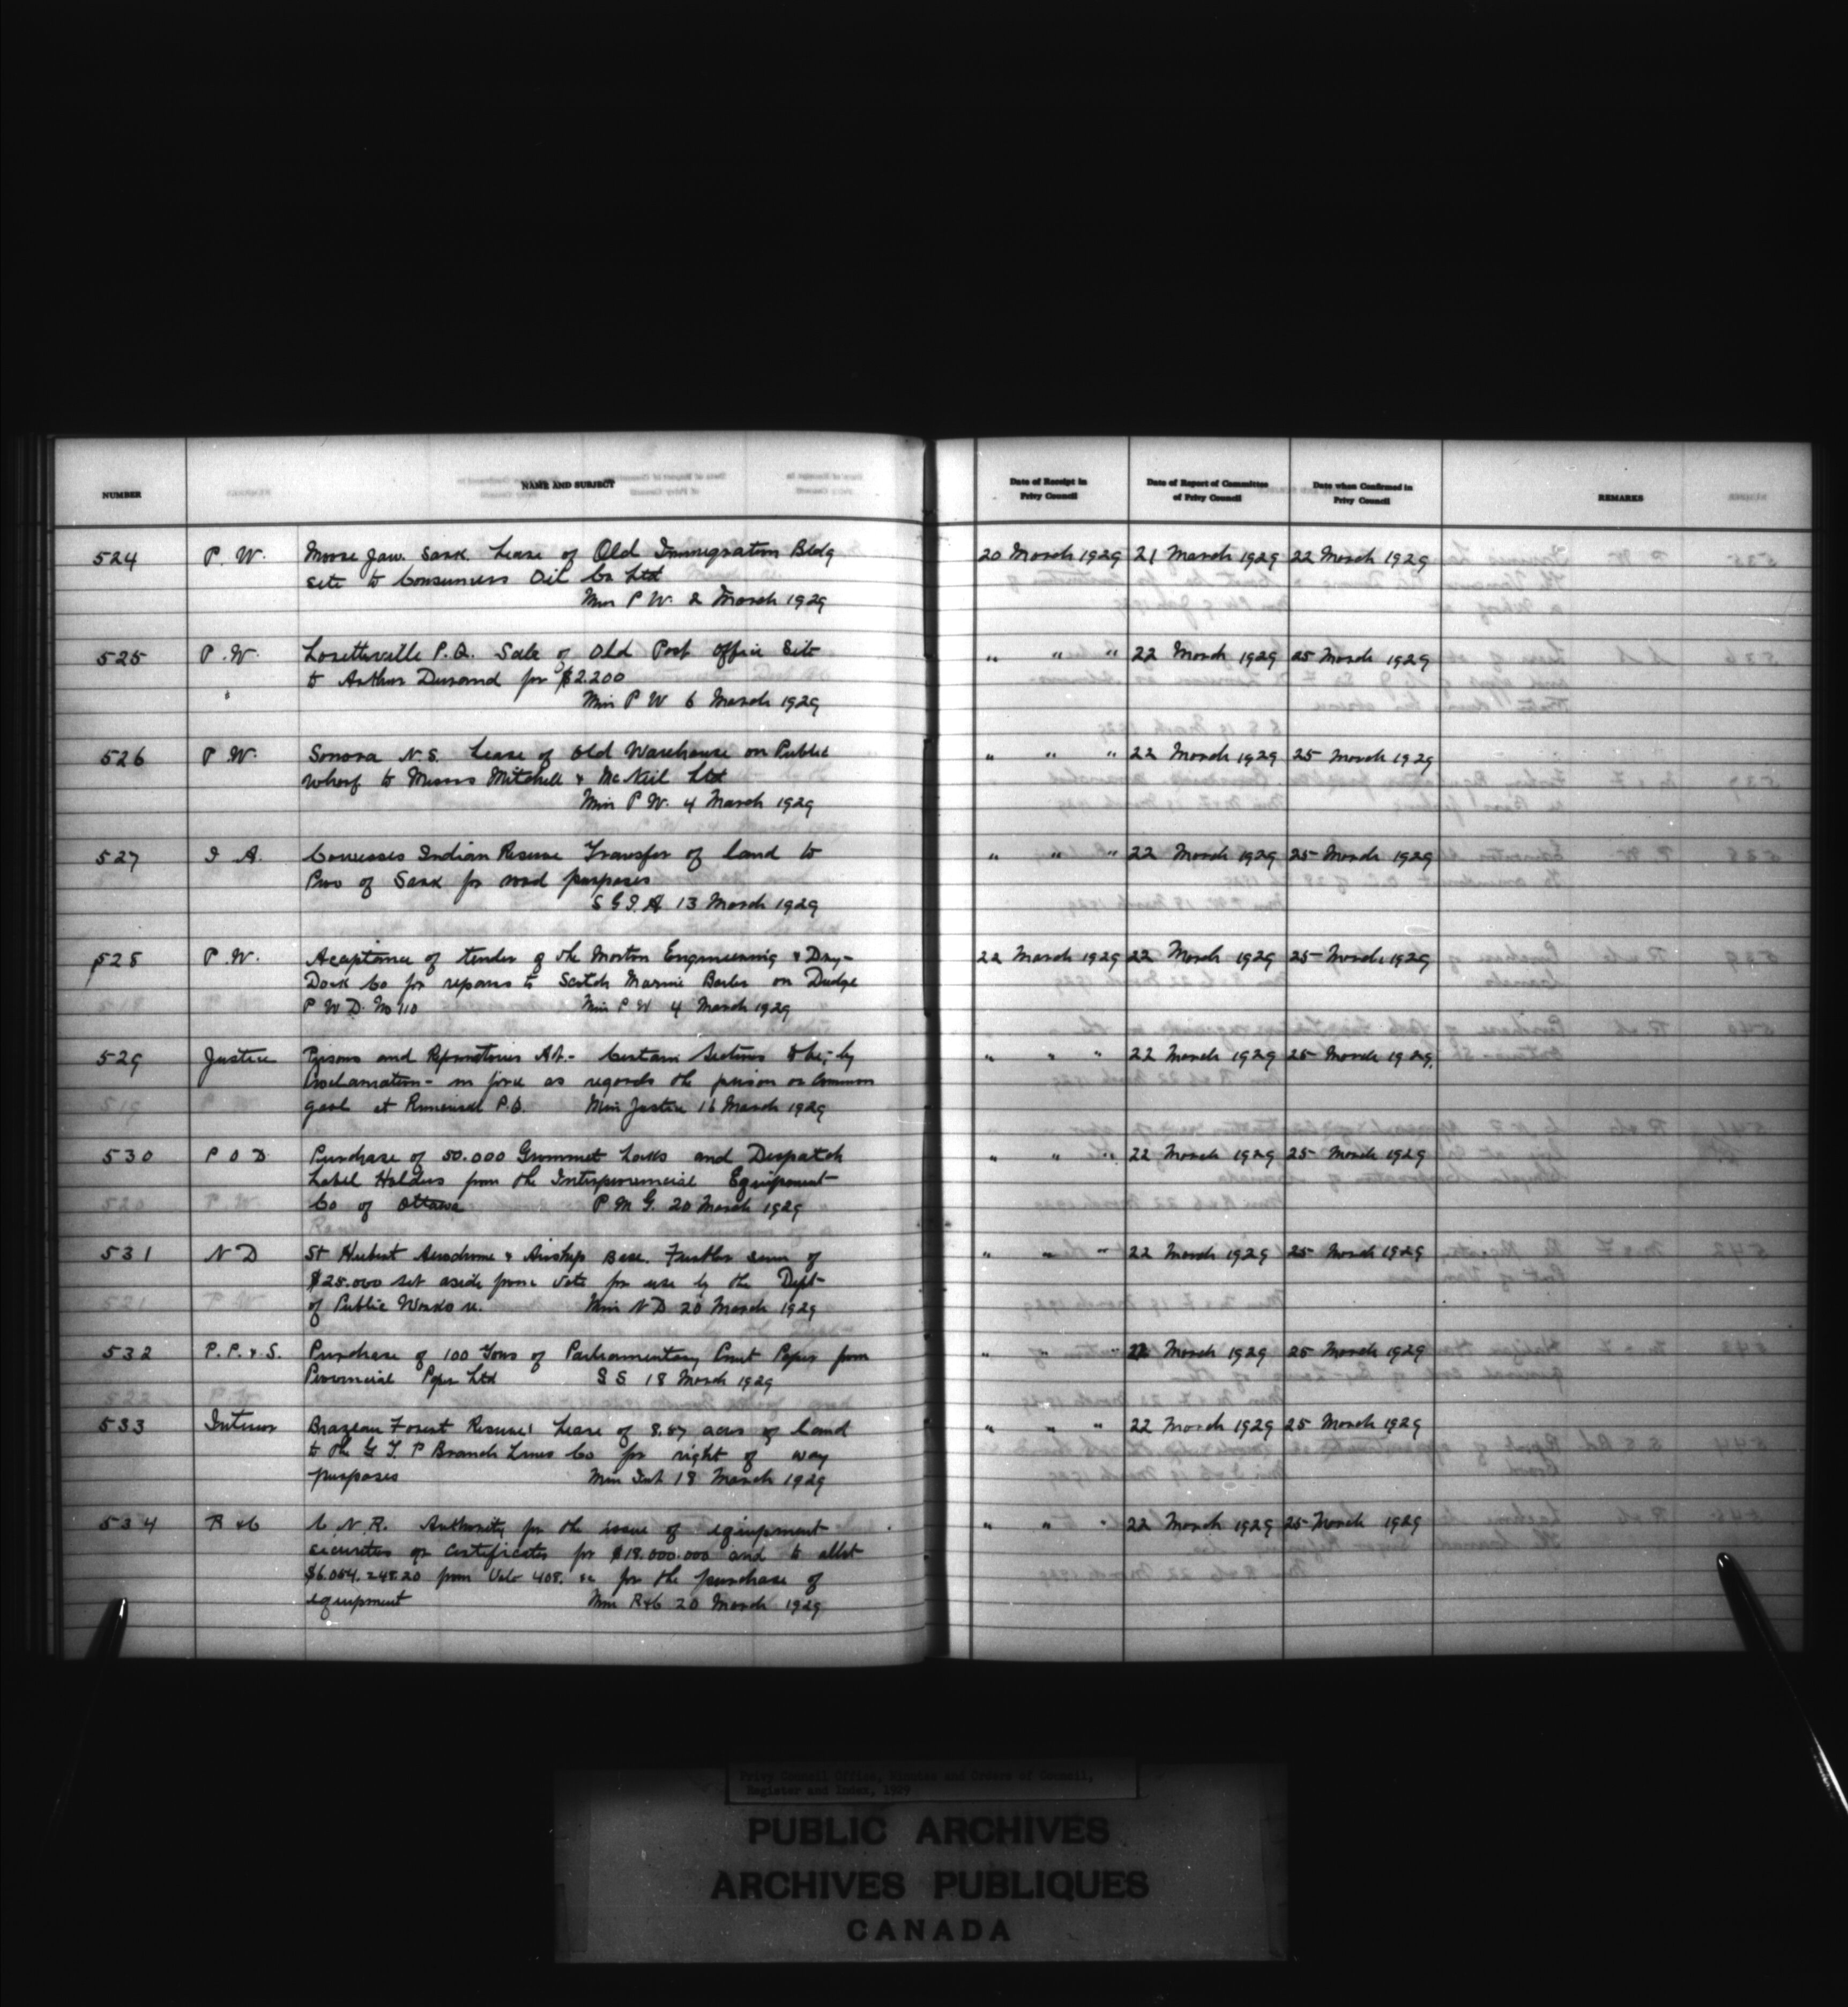 NUMBER NAME AND SUBJECT Date of Receipt in Privy Council Date of Report of Committee of Privy Council Date when Confirmed in Privy Council REMARKS
524 P. W. Moose Jaw. Sask. Lease of Old Immigration Bldg 20 March 1929 21 March 1929 22 March 1929
site to Consumers Oil Co Ltd
Min P W. 2 March 1929
525 P. W. Loretteville P.Q. Sale of Old Post Office Site " " " 22 March 1929 25 March 1929
to Arthur Durand for $2.200
Min P W 6 March 1929
526 P W. Sonora N.S. Lease of Old Warehouse on Public " " " 22 March 1929 25 March 1929
Wharf to Messrs Mitchell & McNeil Ltd
Min P W. 4 March 1929
527 I A. Cowesses Indian Reserve Transfer of land to " " " 22 March 1929 25 March 1929
Prov of Sask for road purposes
S G I A 13 March 1929
528 P. W. Acceptance of tender of the Morton Engineering & Dry- 22 March 1929 22 March 1929 25 March 1929
Dock Co for repairs to Scotch Marine Boiler on Dredge
P W D. No 110 Min P. W 4 March 1929
529 Justice Prisons and Reformatories Act - Certain Sections to be - by " " " 22 March 1929 25 March 1929.
Proclamation - in force as regards the prison or Common
gaol at Rimouski P.Q. Min Justice 16 March 1929
530 P O D Purchase of 50.000 Grommet Locks and Despatch " " " 22 March 1929 25 March 1929
Label Holders from the Interprovincial Equipment
Co of Ottawa P. M G. 20 March 1929
531 N D St Hubert Aerodrome & Airship Base. Further sum of " " " 22 March 1929 25 March 1929
$25.000 set aside from Vote for use by the Dept
of Public Works re. Min N D 20 March 1929
532 P. P. & S. Purchase of 100 Tons of Parliamentary Print Paper from " " " 22 March 1929 25 March 1929
Provincial Paper Ltd S S 18 March 1929
533 Interior Brazeau Forest Reserve Lease of 8.87 acres of land " " " 22 March 1929 25 March 1929
to the G T. P Branch Lines Co for right of way
purposes Min Int 18 March 1929
534 R & C C. N. R. Authority for the issue of equipment " " " 22 March 1929 25 March 1929
securities or certificates for $18.000.000 and to allot
from Vote 408. for the purchase of
equipment Min R&C 20 March 1929
Privy Council Office, Minutes and Orders of Council,
Register and Index, 1929
PUBLIC ARCHIVES
ARCHIVES PUBLIQUES
CANADA